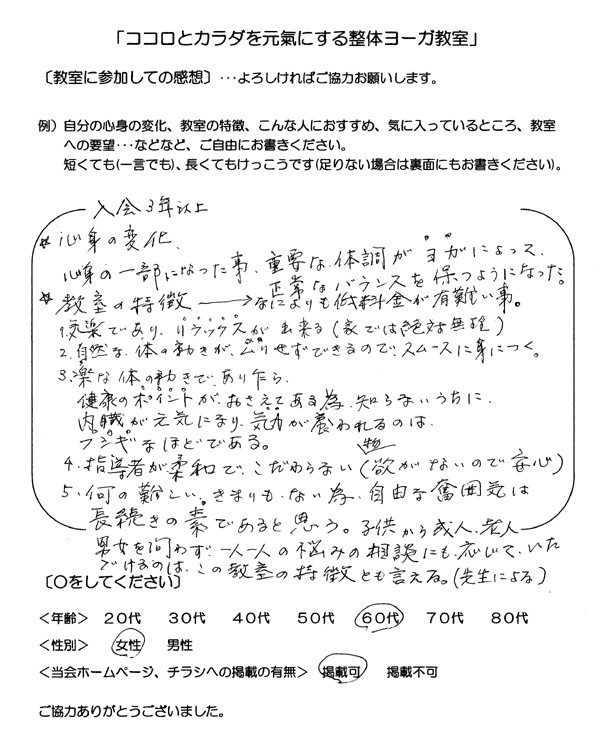 「ココロとカラダを元氣にする整体ヨーガ教室」
〔教室に参加しての感想〕・・・よろしければご協力お願いします。
例）自分の心身の変化、教室の特徴、こんな人におすすめ、気に入っているところ、教室
への要望・・・などなど、ご自由にお書きください。
短くても(一言でも)、長くてもけっこうです(足りない場合は裏面にもお書きください)。
入会3年以上
☆心身の変化、
心身の一部になった事、重要な体調がヨガによって、
正常なバランスを保つようになった。
☆教室の特徴 → なによりも低料金が有難い事。
1.気楽であり、リラックスが出来る(家では絶対無理)
2.自然な体の動きが、ムリせずできるので、スムースに身につく。
3.楽な体の動きであり乍ら、
健康のポイントがおさえてある為、知らないうちに、
内臓が元気になり、気力が養われるのは、
フシギなほどである。
4.指導者が柔和で、こだわらない(物欲がないので安心)
5.何の難しいきまりもない為、自由な雰囲気は
長続きの素であると思う。子供から成人、老人
男女を問わず、一人一人の悩みの相談にも応じていた
だけるのは、この教室の特徴とも言える。(先生による)
〔○をしてください〕
＜年齢＞ 20代 30代 40代 50代 60代 70代 80代
＜性別＞ 女性 男性
＜当会ホームページ、チラシへの掲載の有無＞ 掲載可 掲載不可
ご協力ありがとうございました。